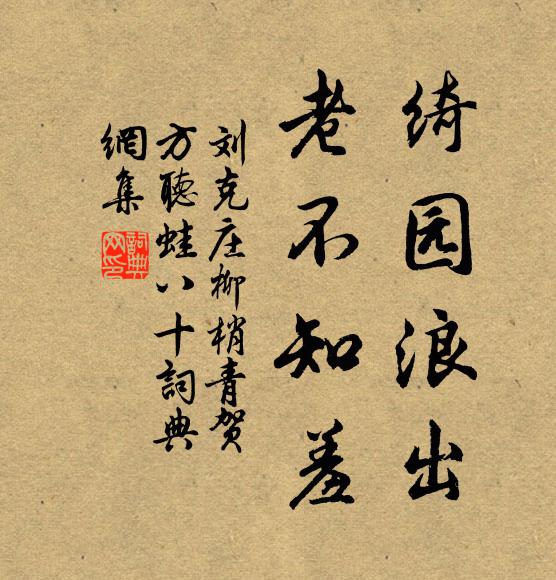 绮园浪出
老不知羞
刘克庄柳梢青贺
方聽蛙八十詞典
網集
詞典
网印